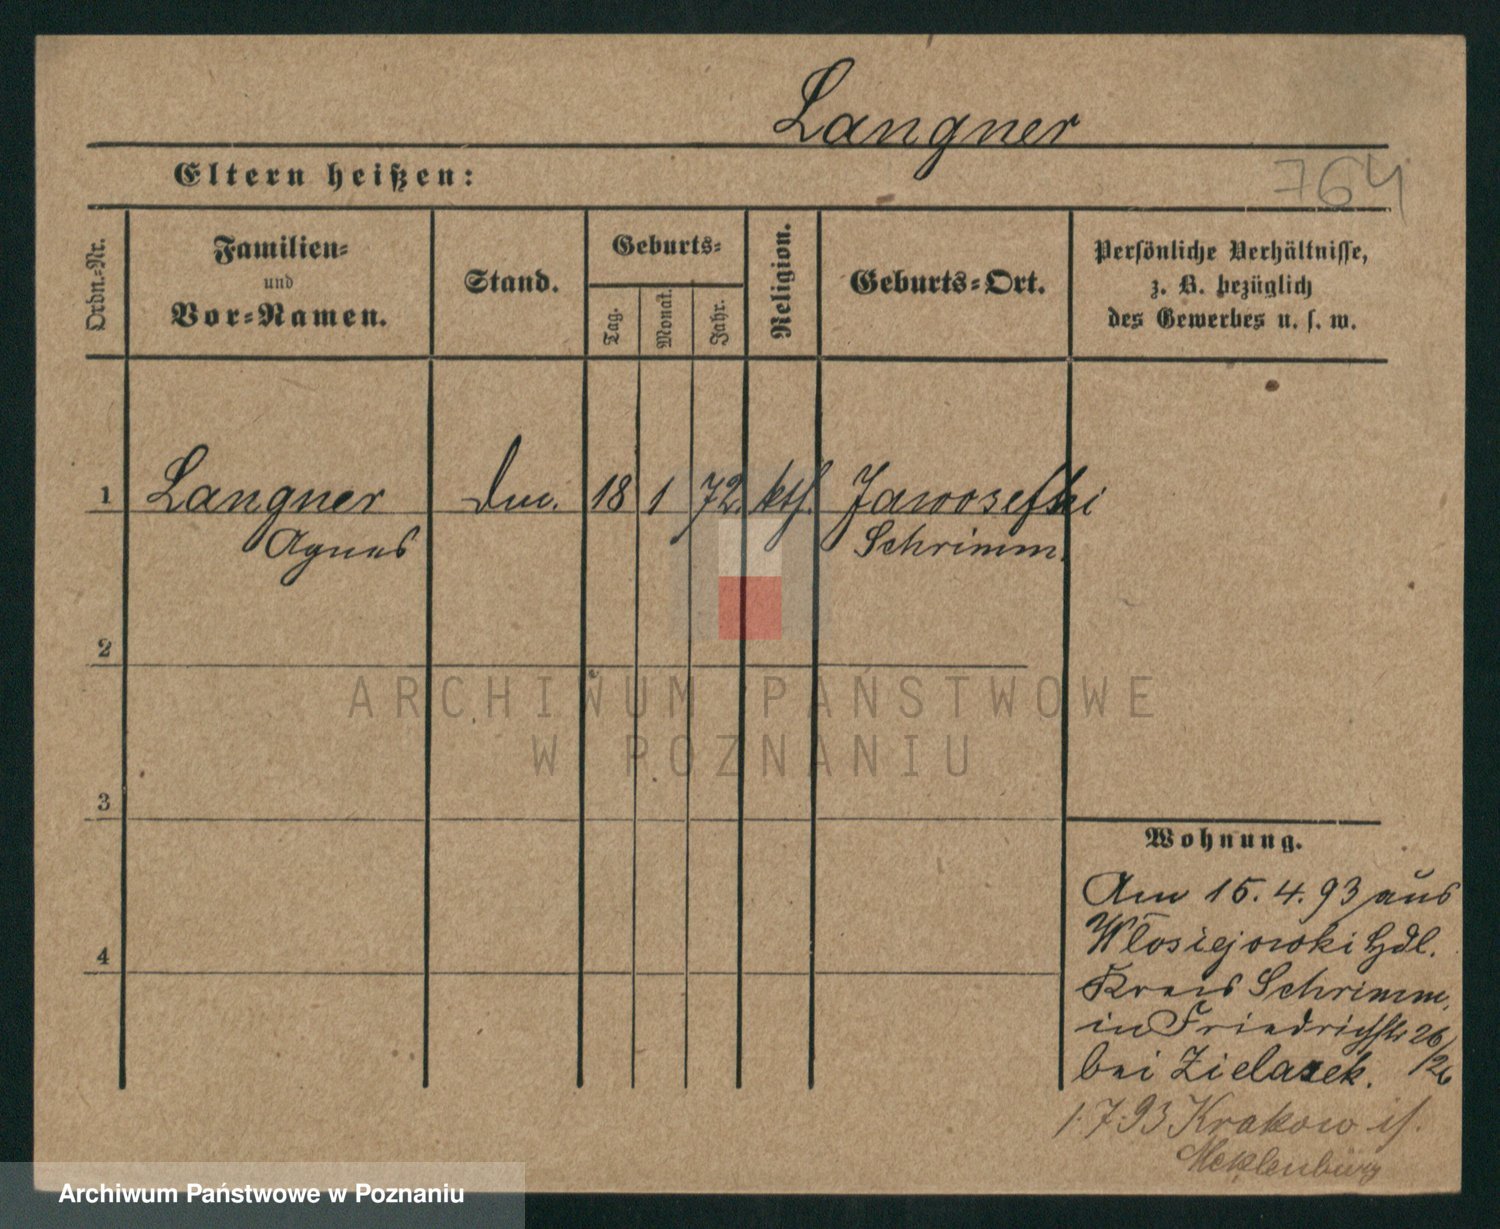 Langner
Eltern heißen:
764
Ordn.-Nr.
Familien-
und
Vor-Namen.
Stand.
Geburts-
Tag.
Monat.
Jahr.
Religion.
Geburts-Ort.
Persönliche Verhältnisse,
z. B. bezüglich
des Gewerbes u. s. w.
1 Langner 18 1 72. kth. Jawosefski
Agnes Schrimm.
2
3
4
ARCHIWUM PAŃSTWOWE
W POZNANIU
Wohnung.
Am 15. 4. 93 aus
Włosiejowki Hdl.
Kreis Schrimm,
in Friedrichstr 26
bei Zielazek. /26
1.7.93 Krakow i/.
Meklenburg
Archiwum Państwowe w Poznaniu